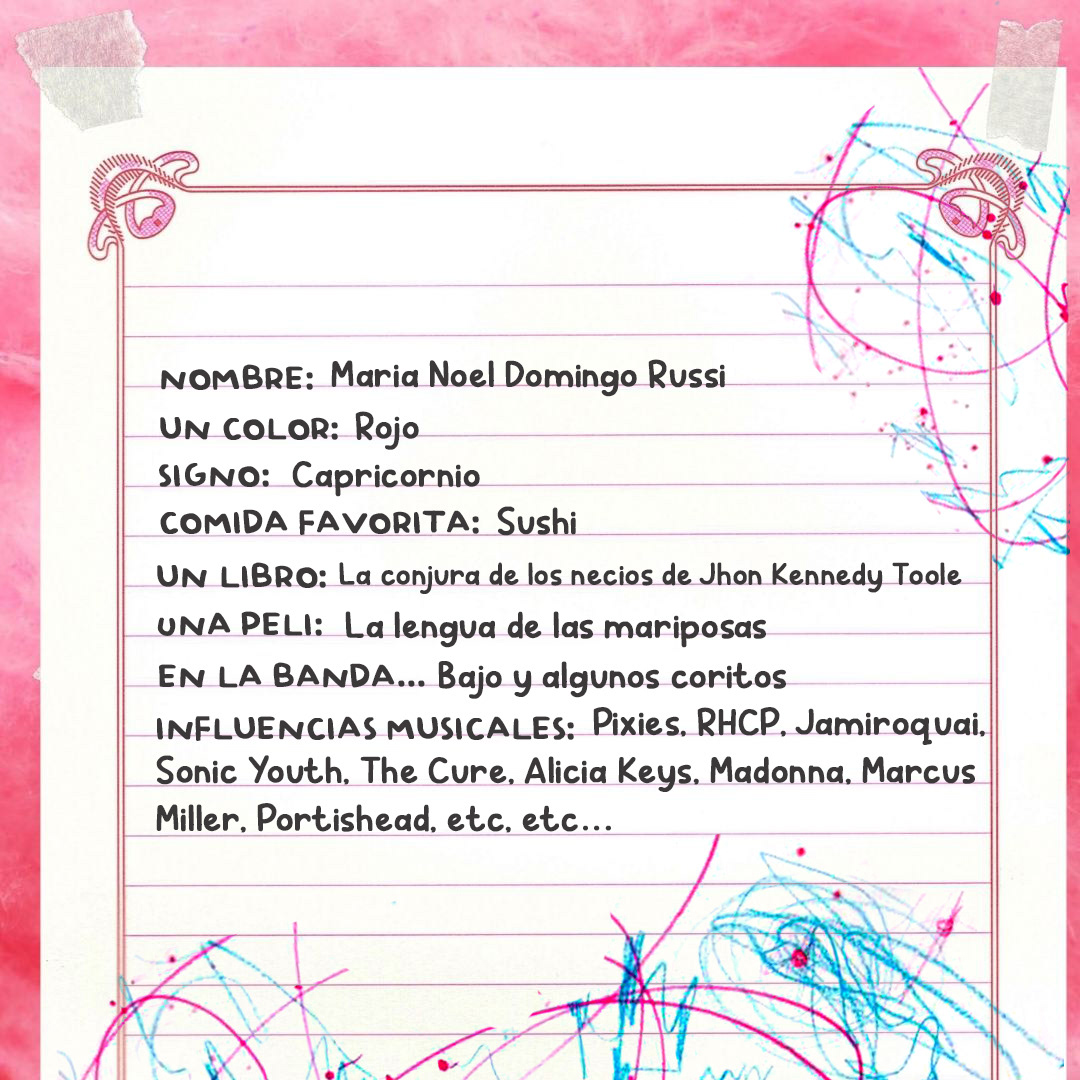 NOMBRE: Maria Noel Domingo Russi
UN COLOR: Rojo
SIGNO: Capricornio
COMIDA FAVORITA: Sushi
UN LIBRO: La conjura de los necios de Jhon Kennedy Toole
UNA PELI: La lengua de las mariposas
EN LA BANDA... Bajo y algunos coritos
INFLUENCIAS MUSICALES: Pixies, RHCP, Jamiroquai,
Sonic Youth, The Cure, Alicia Keys, Madonna, Marcus
Miller, Portishead, etc, etc...